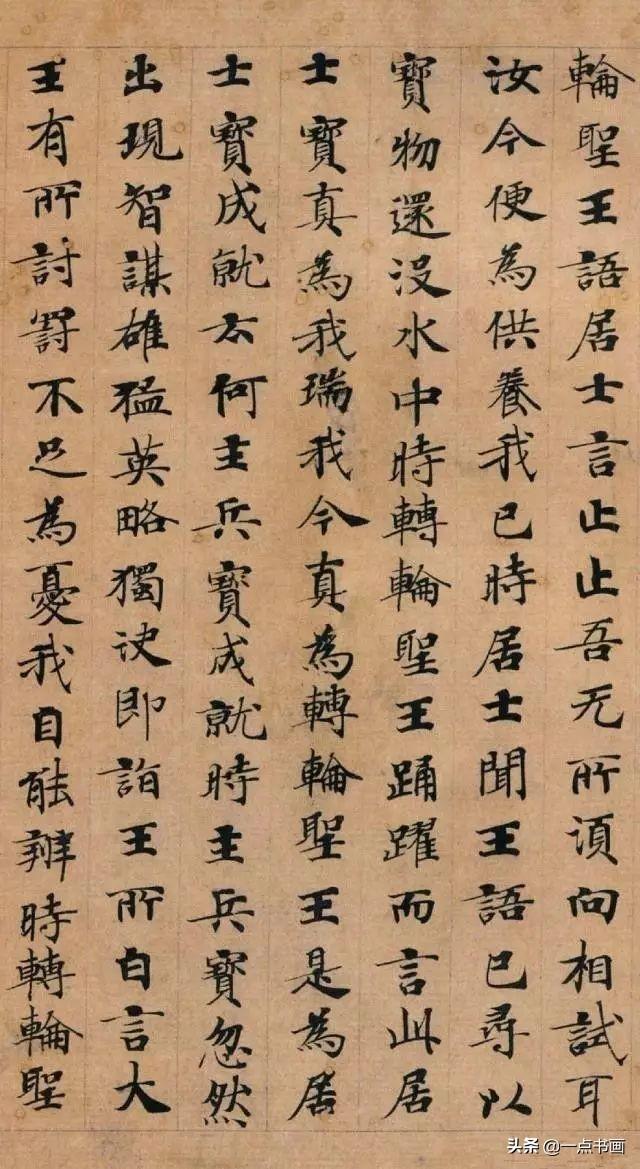 輪聖王語居士言止止吾无所湏向相試耳
汝今便為供養我已時居士聞王語已尋以
寶物還沒水中時轉輪聖王踊躍而言此居
士寶真為我瑞我今真為轉輪聖王是為居
士寶成就云何主兵寶成就時主兵寶忽然
出現智謀雄猛英略獨決即詣王所白言大
王有所討罸不足為憂我自能辦時轉輪聖
头条 @一点书画